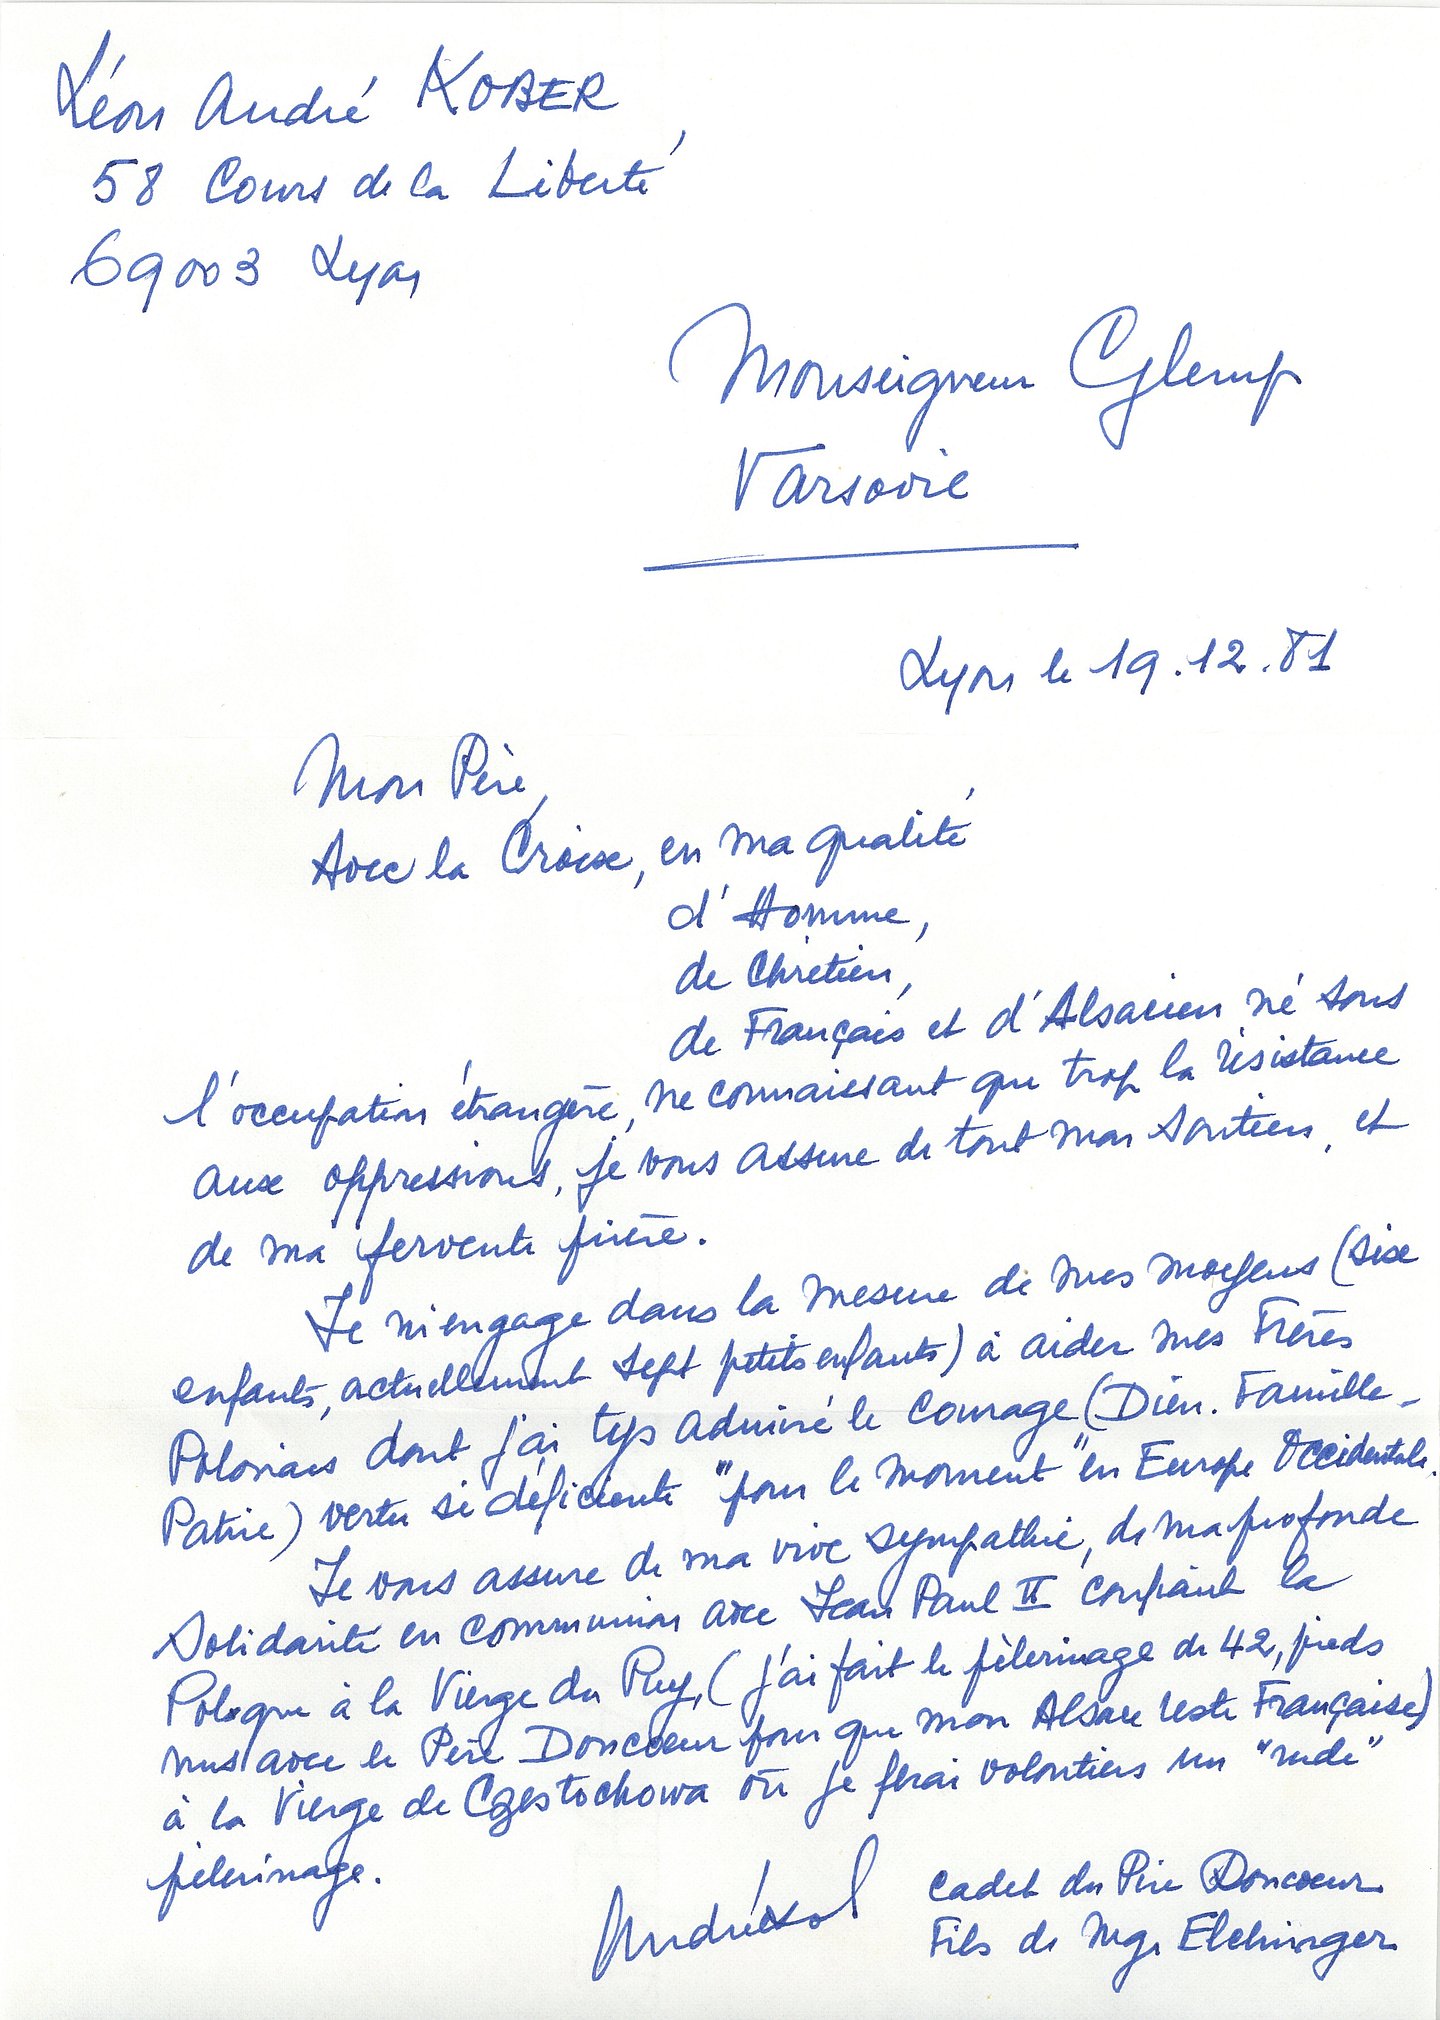 Léon André KOBER,
58 Cours de la Liberté
69003 Lyon
Monseigneur Glemp
Varsovie
Lyon le 19.12.81
Mon Père,
Avec la Croix, en ma qualité
d'Homme,
de Chrétien,
de Français et d'Alsacien né sous
l'occupation étrangère, ne connaissant que trop la résistance
aux oppressions, je vous assure de tout mon soutien, et
de ma fervente prière.
Je m'engage dans la mesure de mes moyens (six
enfants, actuellement sept petits enfants) à aider mes Frères
Polonais dont j'ai tjs admiré le courage (Dieu. Famille -
Patrie) vertu si déficiente "pour le moment" en Europe Occidentale.
Je vous assure de ma vive sympathie, de ma profonde
Solidarité en communion avec Jean Paul II confiant la
Pologne à la Vierge du Puy, (j'ai fait le pèlerinage de 42, pieds
nus avec le Père Doncoeur pour que mon Alsace reste Française)
à la Vierge de Częstochowa où je ferai volontiers un "rude"
pèlerinage.
cadet du Père Doncoeur
Fils de Mgr Elchinger